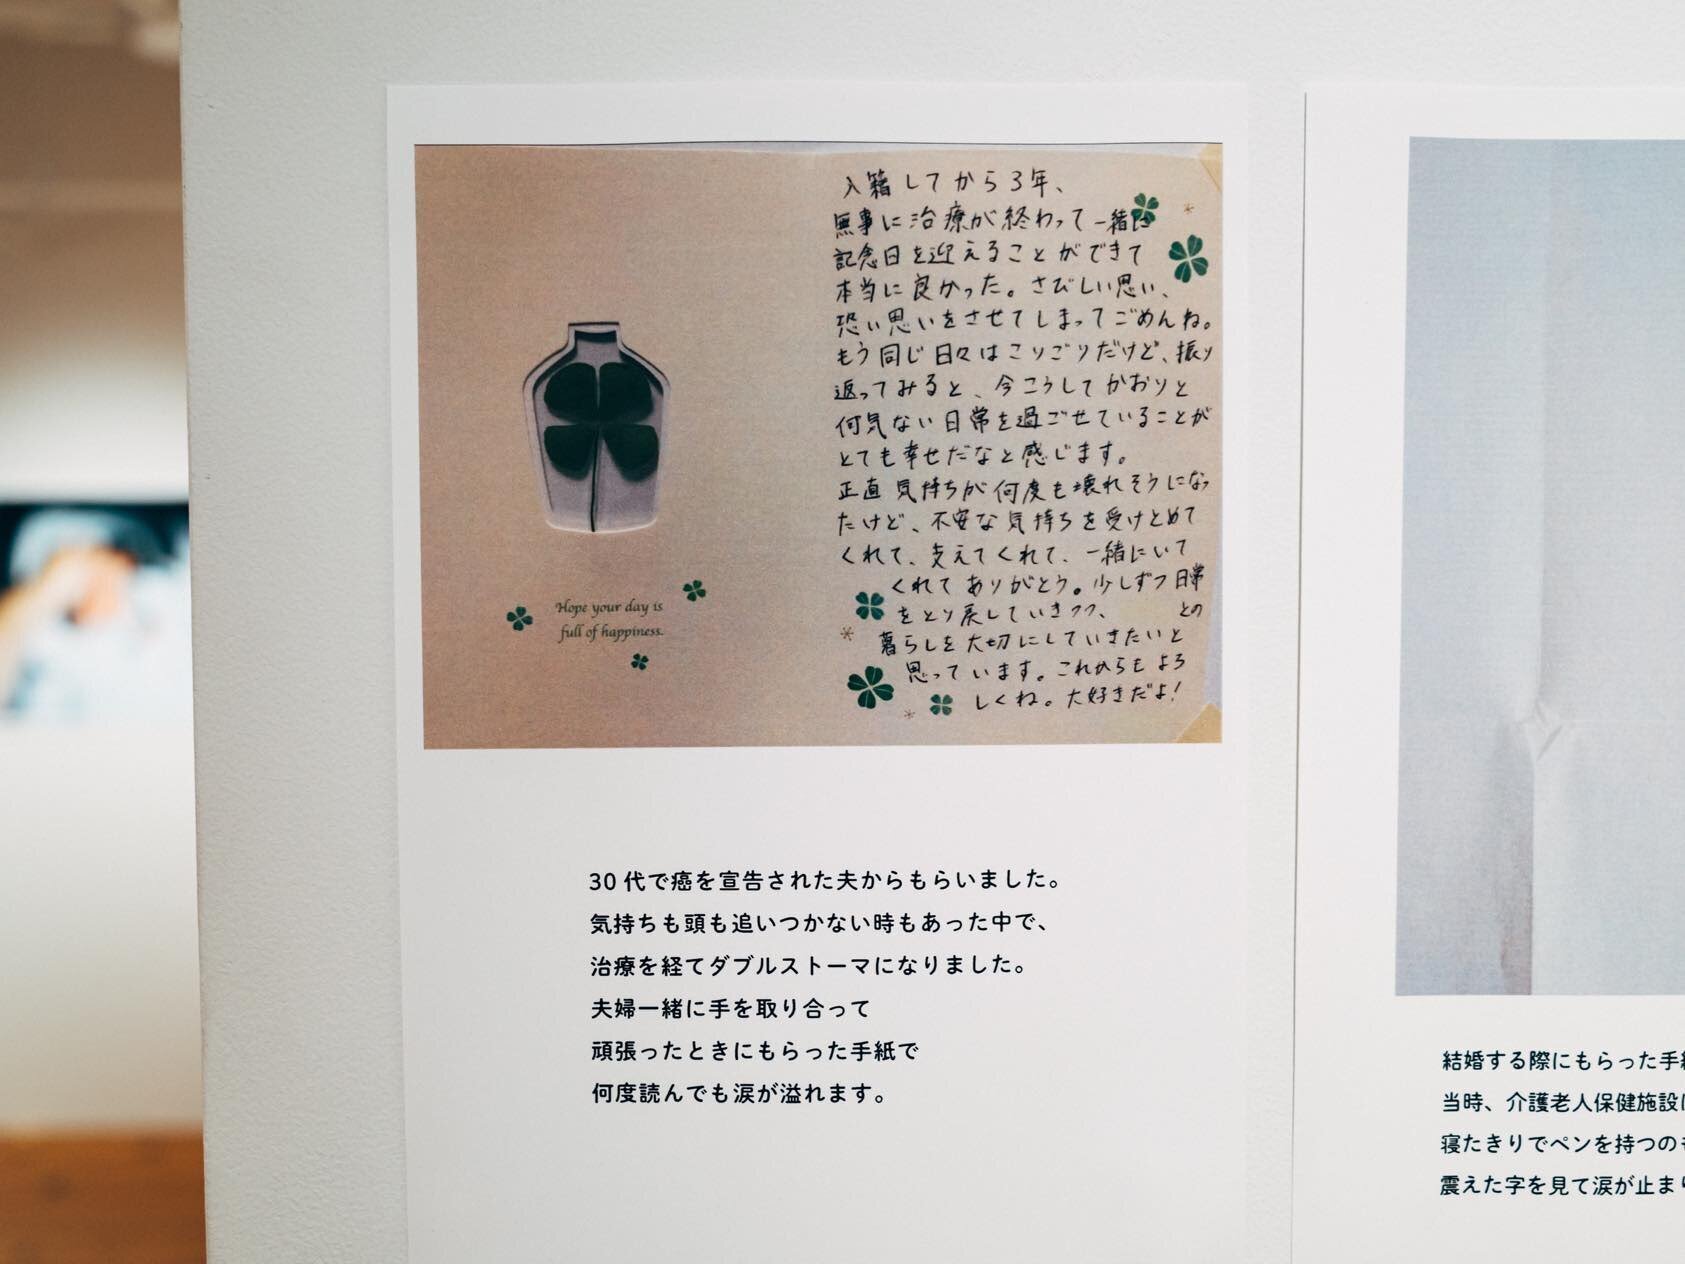 入籍してから3年、
無事に治療が終わって一緒に
記念日を迎えることができて
本当に良かった。さびしい思い、
恐い思いをさせてしまってごめんね。
もう同じ日々はこりごりだけど、振り
返ってみると、今こうしてかおりと
何気ない日常を過ごせていることが
とても幸せだなと感じます。
正直気持ちが何度も壊れそうになっ
たけど、不安な気持ちを受けとめて
くれて、支えてくれて、一緒にいて
くれてありがとう。少しずつ日常
をとり戻していきつつ、 との
暮らしを大切にしていきたいと
思っています。これからもよろ
しくね。大好きだよ!
Hope your day is
full of happiness.
30代で癌を宣告された夫からもらいました。
気持ちも頭も追いつかない時もあった中で、
治療を経てダブルストーマになりました。
夫婦一緒に手を取り合って
頑張ったときにもらった手紙で
何度読んでも涙が溢れます。
結婚する際にもらった手
当時、介護老人保健施設
寝たきりでペンを持つの
震えた字を見て涙が止ま